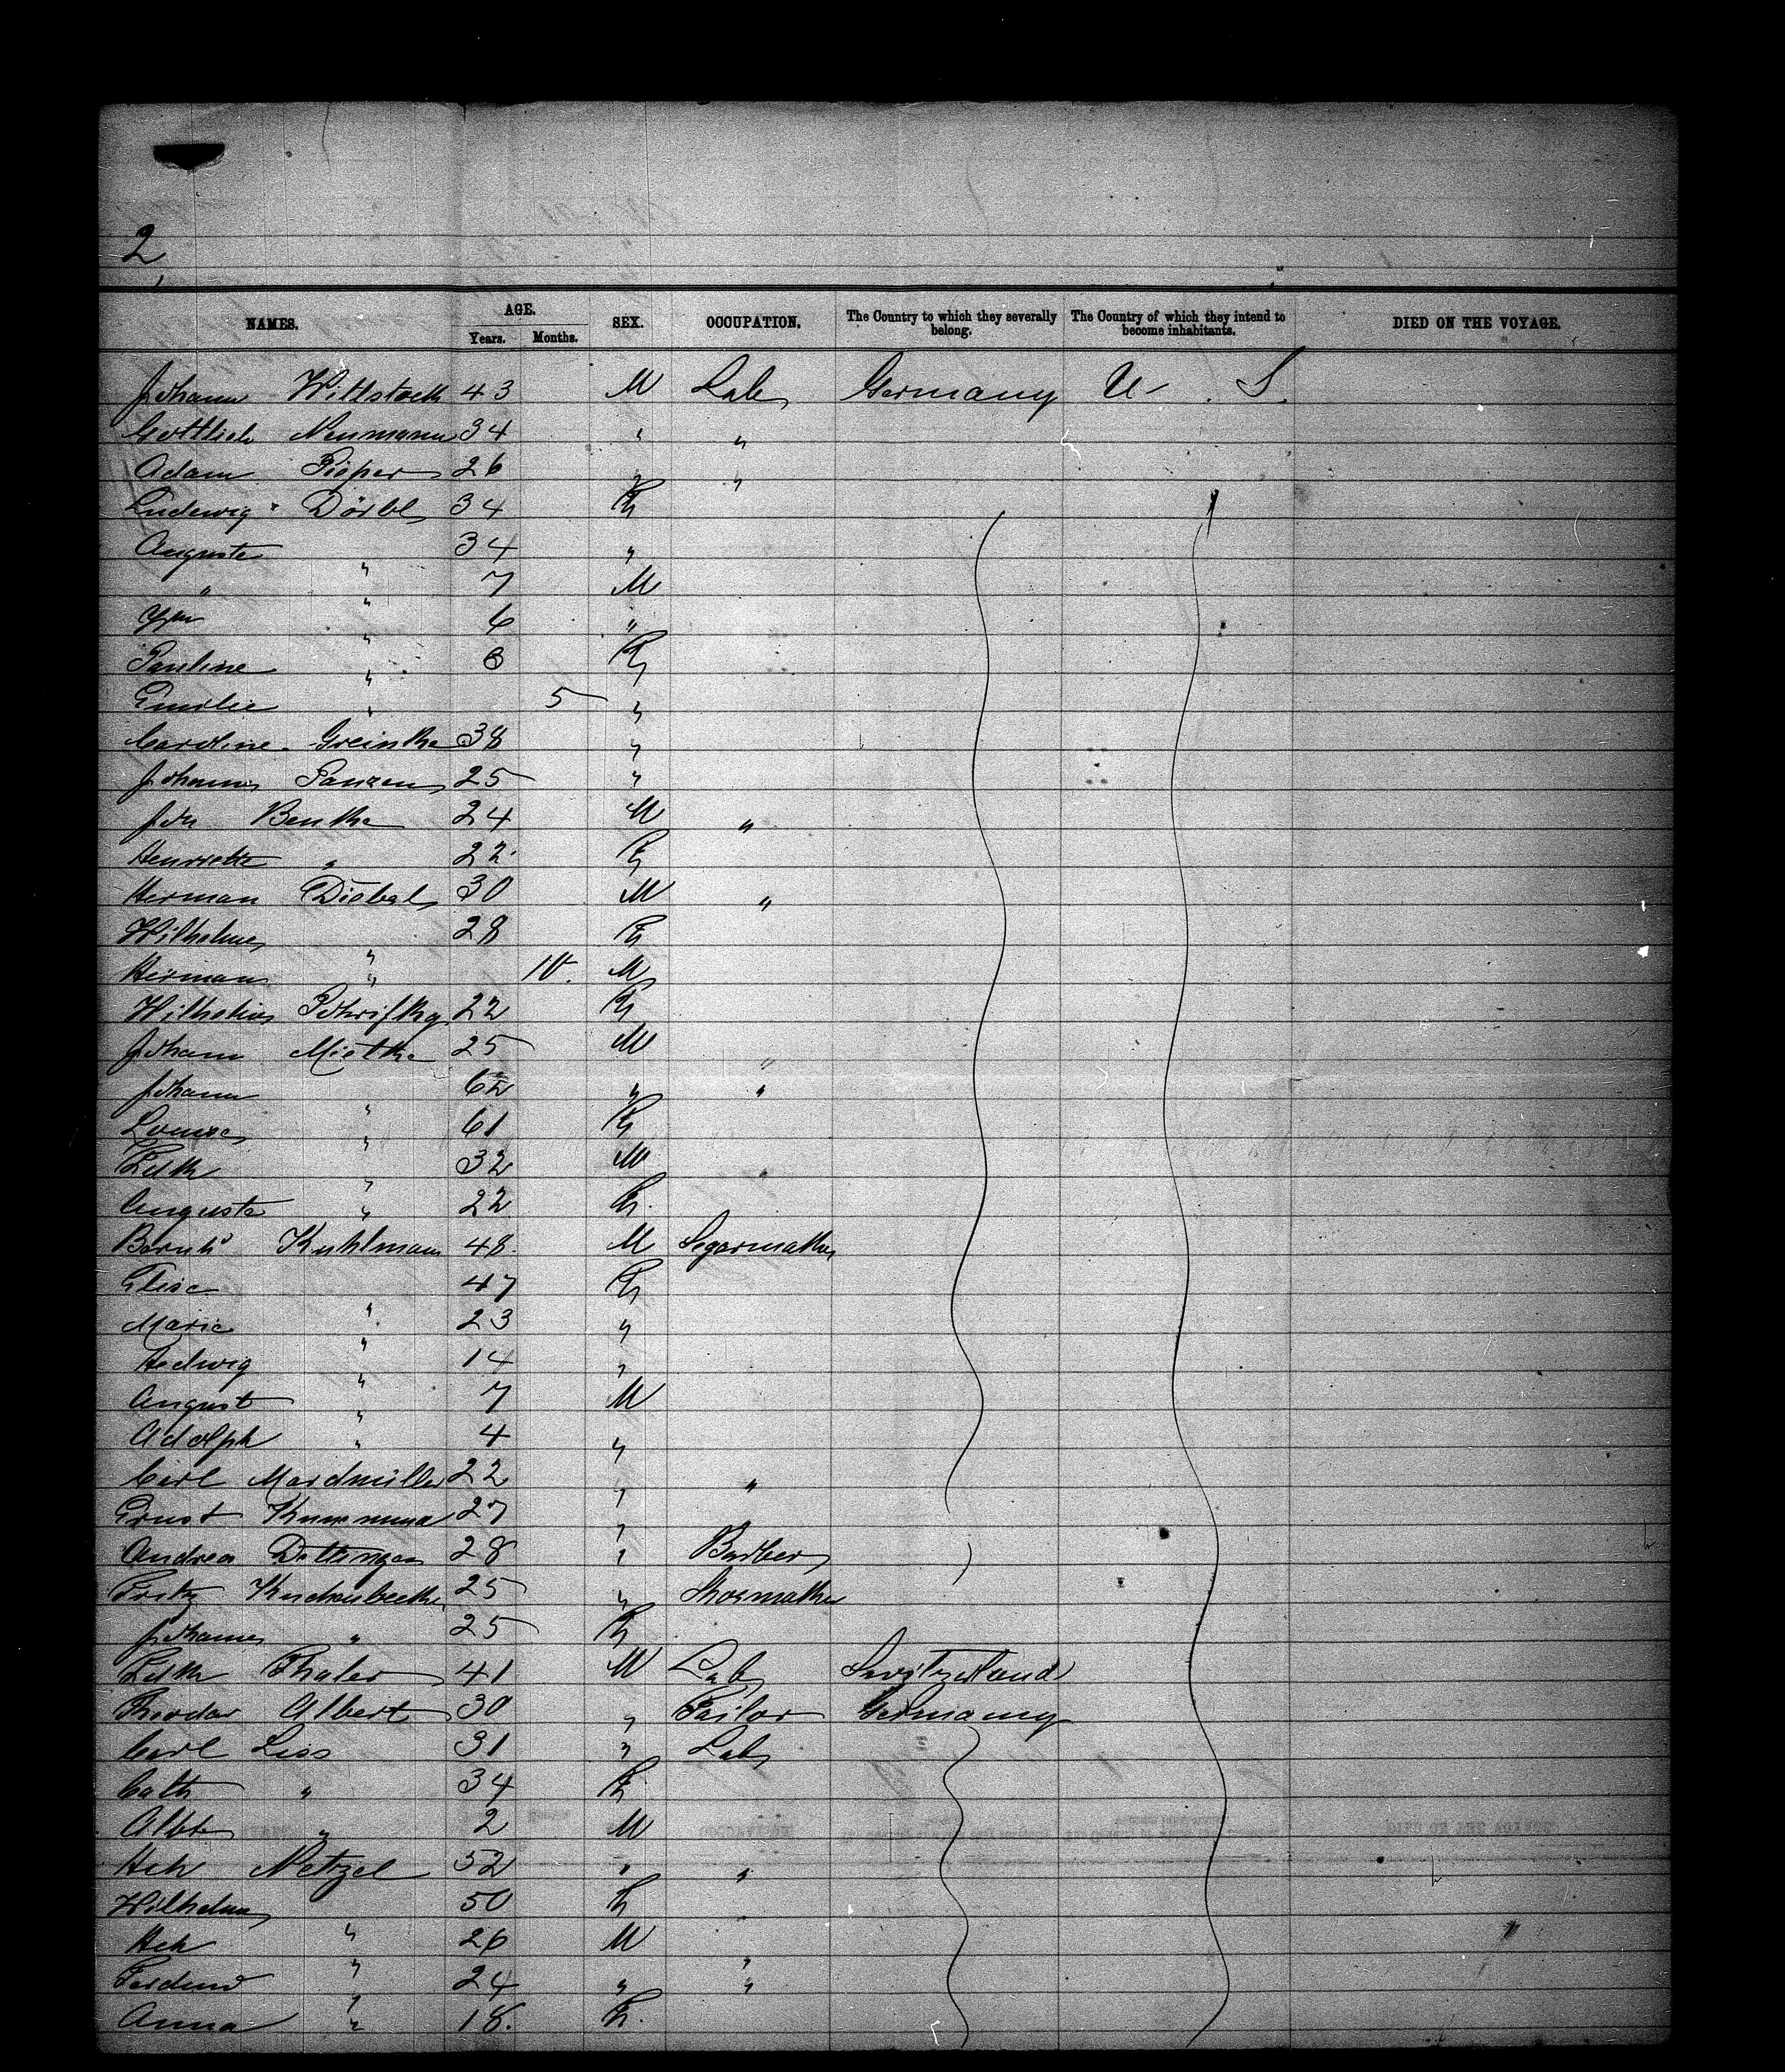 2
NAMES. AGE. SEX. OCCUPATION. The Country to which they severally belong. The Country of which they intend to become inhabitants. DIED ON THE VOYAGE.
Years. Months.
Johann Wittstock 43 M Lab Germany U. S.
Gottlieb Neumann 34 " "
Adam Pieper 26 " "
Ludewig Dörbl 34 F
Auguste " 34 "
" " 7 M
" 6 "
Pauline " 3 F
Emilie " 5 "
Caroline Greinke 38 "
Johanns Panzen 25 "
Joh Benthe 24 M "
Henriette " 22 F
Herman Diebel 30 M "
Wilhelme " 28 F
Herman " 10 M
Wilhelm 22 F
Johann Miethe 25 M "
Johann " 62 " "
Louise " 61 F
32 M "
Auguste " 22 F
Bernhd Kuhlmann 48 M Segarmaker
Elise " 47 F
Marie " 23 "
Hedwig " 14 "
August " 7 M
Adolph " 4 "
Carl Mardmüller 22 " "
Ernst 27 "
Andrea Dettingen 28 " Barber
Fritz Kuchenbecker 25 " Shoemaker
Johanne " 25 F
Thaler 41 M Lab Switzerland
Theodor Albert 30 " Tailor Germany
Carl Liss 31 " Lab
Cath " 34 F
Albt " 2 M
Hch Netzel 52 " "
Wilhelm " 50 F
Hch " 26 M "
Ferdind " 24 " "
Anna " 18 F